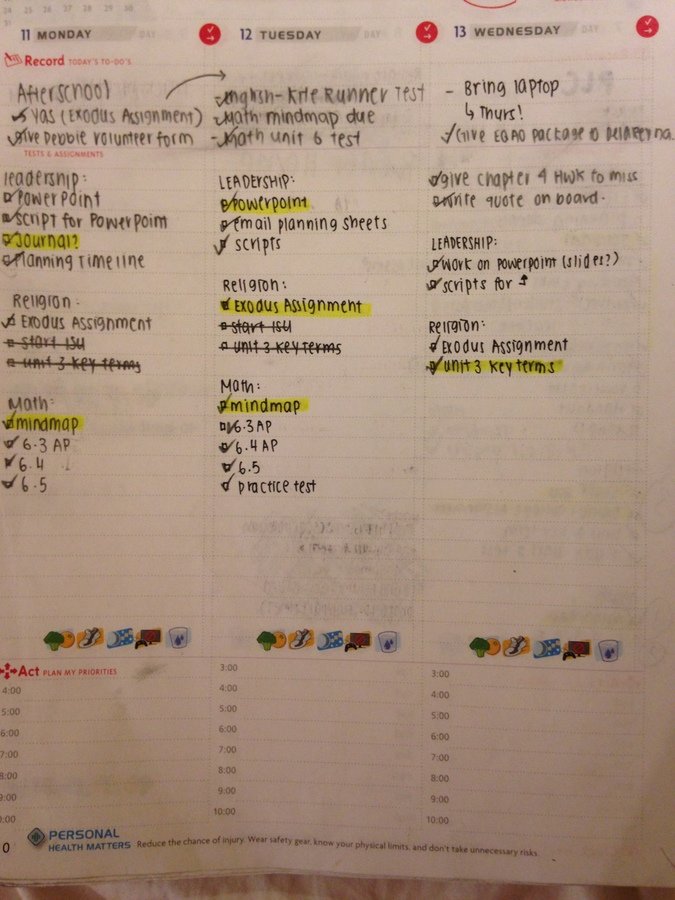 24 25 26 27 28 29 30
31
11 MONDAY DAY
Record TODAY'S TO-DO'S
Afterschool
YAS (Exodus Assignment)
Give Debbie volunteer form
TESTS & ASSIGNMENTS
leadership:
PowerPoint
Script for PowerPoint
Journal?
Planning Timeline
Religion:
Exodus Assignment
start ISU
unit 3 key terms
Math:
mindmap
6.3 AP
6.4
6.5
Act PLAN MY PRIORITIES
4:00
5:00
6:00
7:00
8:00
9:00
0:00
12 TUESDAY DAY
English- Kite Runner Test
Math mindmap due
- Math unit 6 test
LEADERSHIP:
Powerpoint
email planning sheets
scripts
Religion:
Exodus Assignment
start ISU
unit 3 key terms
Math:
mindmap
6.3 AP
6.4 AP
6.5
practice test
3:00
4:00
5:00
6:00
7:00
8:00
9:00
10:00
13 WEDNESDAY DAY
- Bring laptop
↳ Thurs!
Give EQAO package to
give chapter 4 HWK to miss
write quote on board.
LEADERSHIP:
Work on Powerpoint (slides?)
scripts for ↑
Religion:
Exodus Assignment
unit 3 key terms
3:00
4:00
5:00
6:00
7:00
8:00
9:00
10:00
0
PERSONAL
HEALTH MATTERS Reduce the chance of injury. Wear safety gear, know your physical limits, and don't take unnecessary risks.